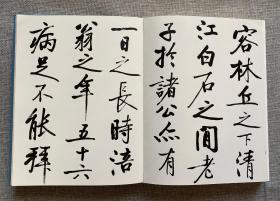 客林丘之下清
江白石之间老
子於諸公亦有
一日之長時涪
翁之年五十六
病足不能拜